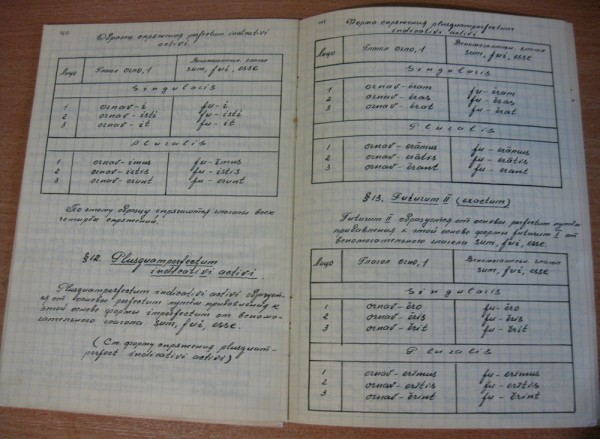 Форма спряжения perfectum indicativi
activi.
Лицо Глагол orno, 1 Вспомогательн. глагол
sum, fui, esse
Singularis
1 ornav-i fu-i
2 ornav-isti fu-isti
3 ornav-it fu-it
Pluralis
1 ornav-imus fu-imus
2 ornav-istis fu-istis
3 ornav-erunt fu-erunt
По этому образцу спрягаются глаголы всех
четырёх спряжений.
§12. Plusquamperfectum
indicativi activi.
Plusquamperfectum indicativi activi образует-
ся от основы perfectum путём прибавления к
этой основе формы imperfectum от вспомо-
гательного глагола sum, fui, esse.
(См. форму спряжения plusquam-
perfect indicativi activi)
Форма спряжения plusquamperfectum
indicativi activi
Лицо Глагол orno, 1 Вспомогательн. глагол
sum, fui, esse
Singularis
1 ornav-ĕram fu-ĕram
2 ornav-ĕras fu-ĕras
3 ornav-ĕrat fu-ĕrat
Pluralis
1 ornav-erāmus fu-erāmus
2 ornav-erātis fu-erātis
3 ornav-ĕrant fu-ĕrant
§13. Futurum II (exactum)
Futurum II образуется от основы perfectum путём
прибавления к этой основе формы futurum I от
вспомогательного глагола sum, fui, esse.
Лицо Глагол orno, 1 Вспомогательн. глагол
sum, fui, esse
Singularis
1 ornav-ĕro fu-ĕro
2 ornav-ĕris fu-ĕris
3 ornav-ĕrit fu-ĕrit
Pluralis
1 ornav-erimus fu-erimus
2 ornav-eritis fu-eritis
3 ornav-ĕrint fu-ĕrint